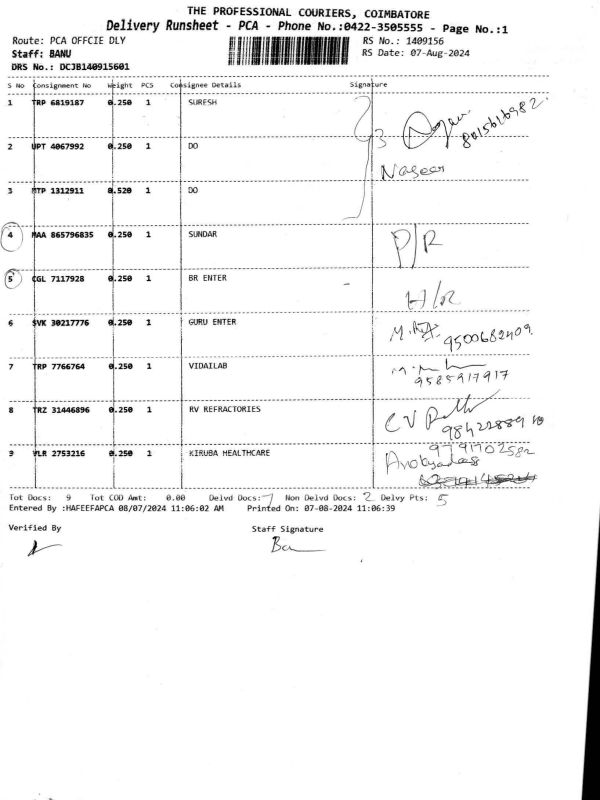 THE PROFESSIONAL COURIERS, COIMBATORE
Delivery Runsheet - PCA - Phone No.:0422-3505555 - Page No.:1
Route: PCA OFFCIE DLY RS No.: 1409156
Staff: BANU RS Date: 07-Aug-2024
DRS No.: DCJB140915601
S No Consignment No Weight PCS Consignee Details Signature
1 TRP 6819187 0.250 1 SURESH 8015616982
2 UPT 4067992 0.250 1 DO 3
Naseer
3 MTP 1312911 0.520 1 DO
4 MAA 865796835 0.250 1 SUNDAR P/R
5 CGL 7117928 0.250 1 BR ENTER H/R
6 SVK 30217776 0.250 1 GURU ENTER 9500682409
7 TRP 7766764 0.250 1 VIDAILAB 9585917917
8 TRZ 31446896 0.250 1 RV REFRACTORIES CV
9 VLR 2753216 0.250 1 KIRUBA HEALTHCARE 9791702582
Tot Docs: 9 Tot COD Amt: 0.00 Delvd Docs: 7 Non Delvd Docs: 2 Delvy Pts: 5
Entered By :HAFEEFAPCA 08/07/2024 11:06:02 AM Printed On: 07-08-2024 11:06:39
Verified By Staff Signature